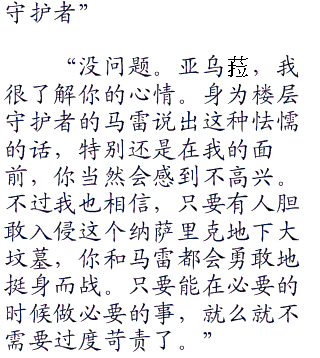 守护者”
“没问题。亚乌菈，我
很了解你的心情。身为楼层
守护者的马雷说出这种怯懦
的话，特别还是在我的面
前，你当然会感到不高兴。
不过我也相信，只要有人胆
敢入侵这个纳萨里克地下大
坟墓，你和马雷都会勇敢地
挺身而战。只要能在必要的
时候做必要的事，就么就不
需要过度苛责了。”